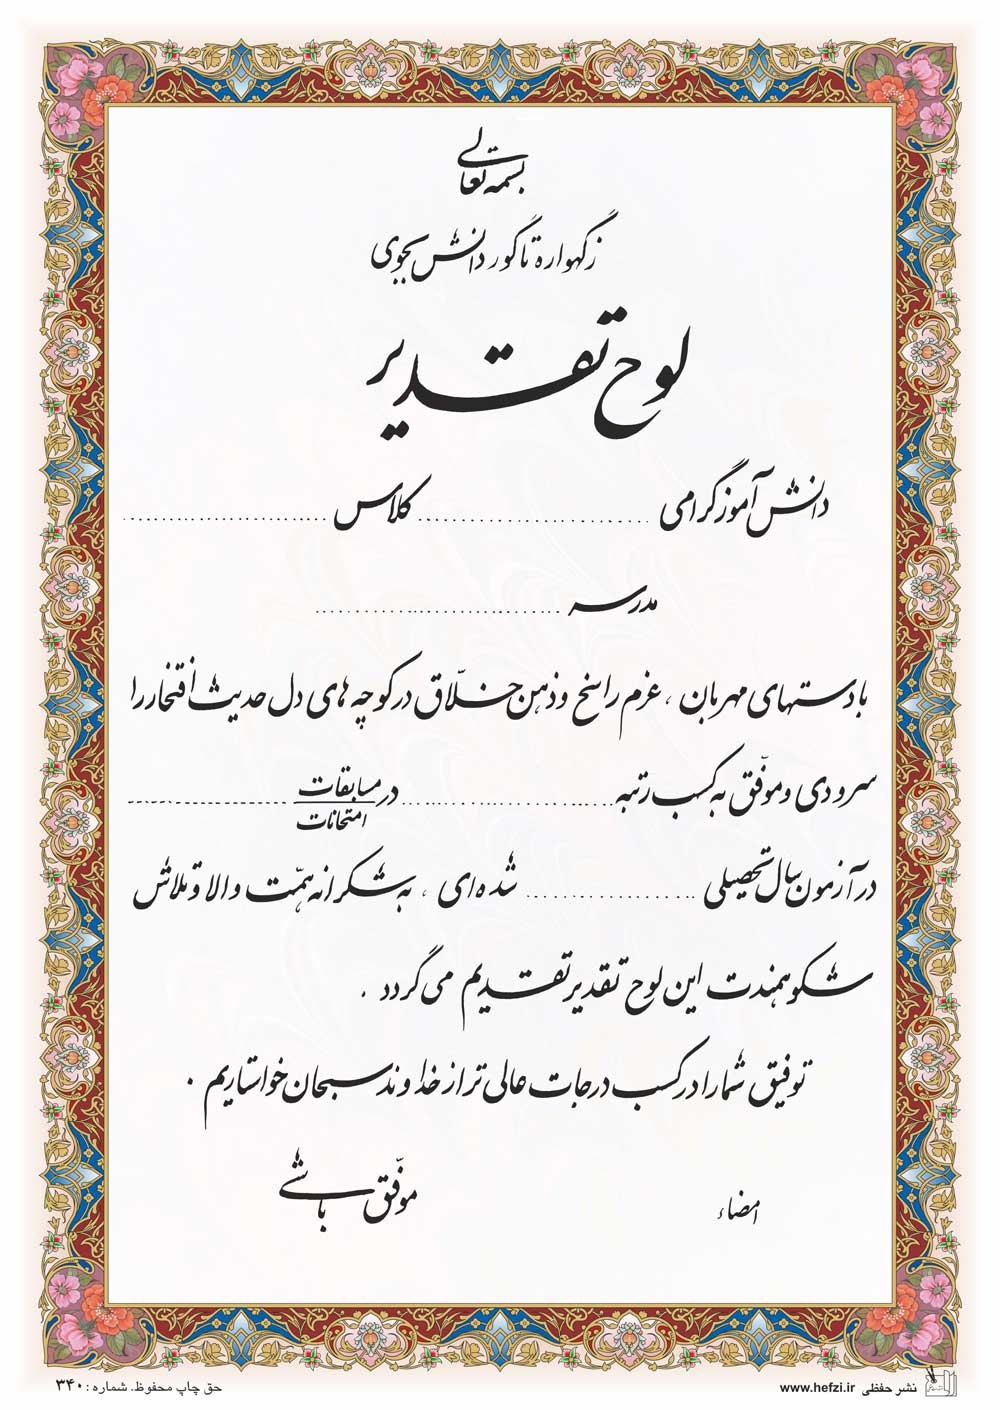 بسمه تعالی
ز گهواره تا گور دانش بجوی
لوح تقدیر
دانش آموز گرامی .................... کلاس ....................
مدرسه ....................
با دستهای مهربان ، عزم راسخ و ذهن خلّاق در کوچه های دل حدیث افتخار را
سرودی و موفّق به کسب رتبه .................... در مسابقات ....................
امتحانات
در آزمون سال تحصیلی .................... شده ای ، به شکرانه همّت والا و تلاش
شکوهمندت این لوح تقدیر تقدیم می گردد .
توفیق شما را در کسب درجات عالی تر از خداوند سبحان خواستاریم .
موفّق باشی
امضاء
نشر حفظی www.hefzi.ir
حق چاپ محفوظ. شماره: ۳۴۰